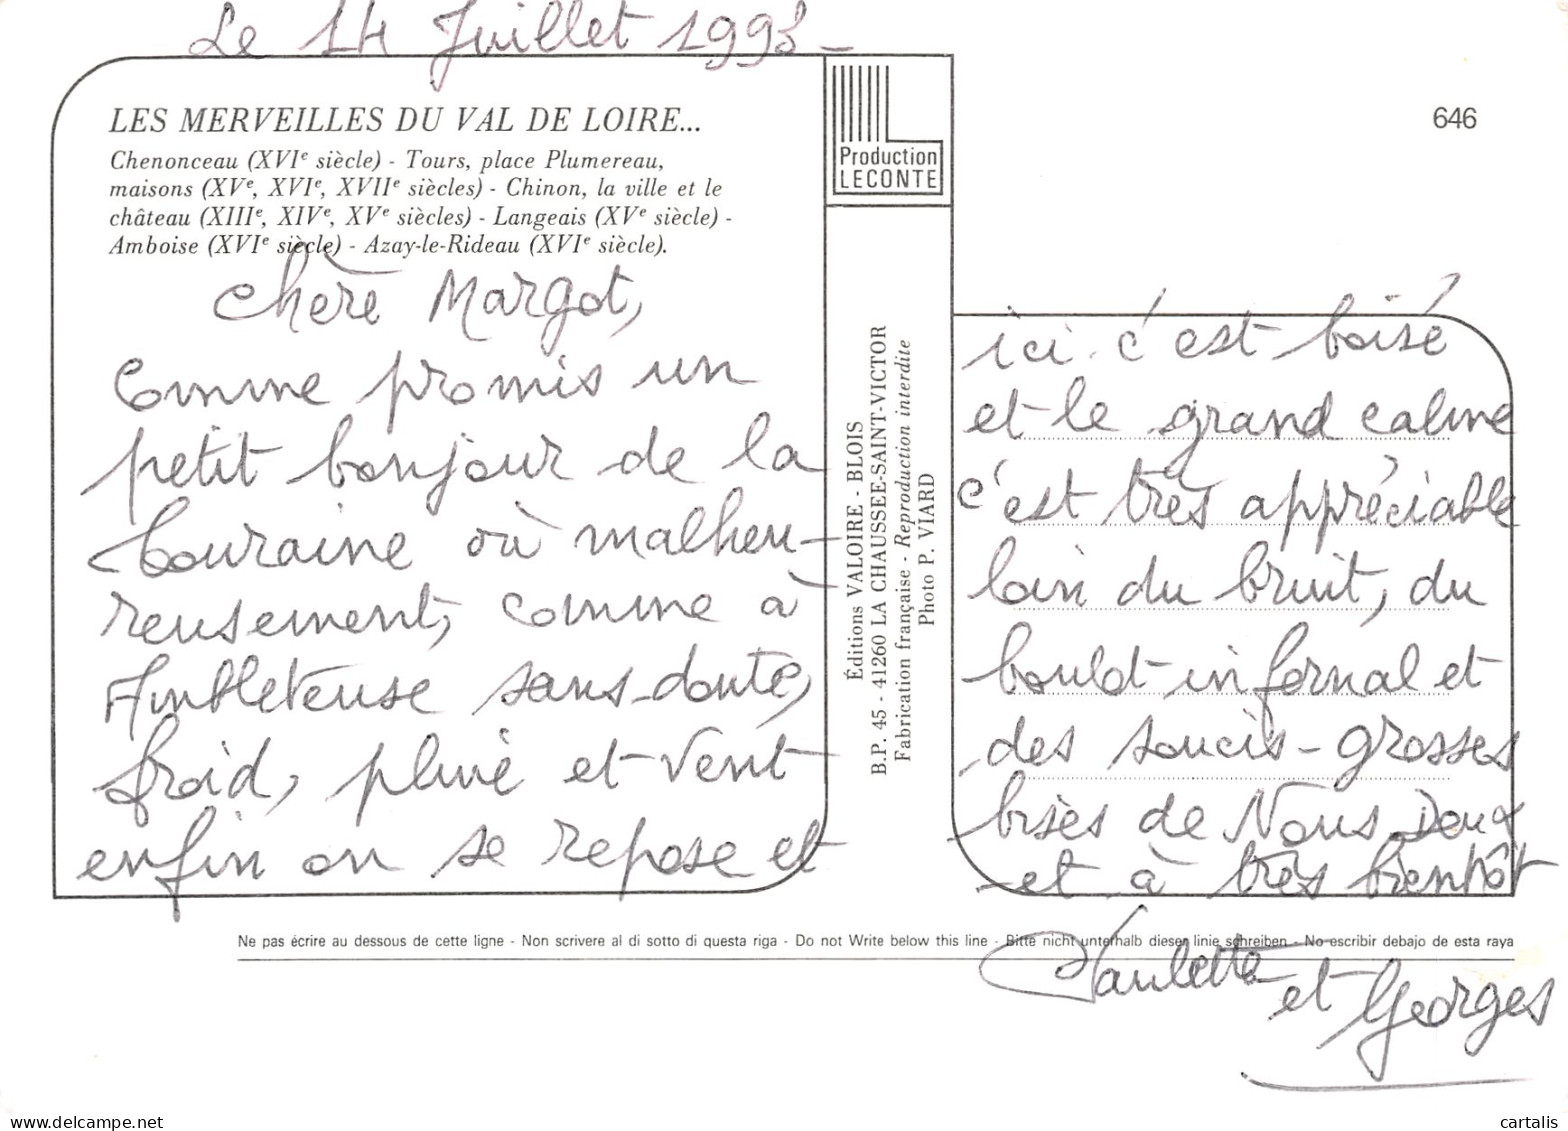 Le 14 Juillet 1993 -
LES MERVEILLES DU VAL DE LOIRE...
Chenonceau (XVIe siècle) - Tours, place Plumereau,
maisons (XVe, XVIe, XVIIe siècles) - Chinon, la ville et le
château (XIIIe, XIVe, XVe siècles) - Langeais (XVe siècle) -
Amboise (XVIe siècle) - Azay-le-Rideau (XVIe siècle).
Chère Margot,
Comme promis un
petit bonjour de la
Touraine où malheu-
reusement, comme à
Ambleteuse sans doute,
froid, pluie et vent
enfin on se repose et
Production
LECONTE
Éditions VALOIRE - BLOIS
B.P. 45 - 41260 LA CHAUSSEE-SAINT-VICTOR
Fabrication française - Reproduction interdite
Photo P. VIARD
646
ici c'est boisé
et le grand calme
c'est très appréciable
loin du bruit, du
boulot infernal et
des soucis - grosses
bises de Nous Deux
et à très bientôt
Ne pas écrire au dessous de cette ligne - Non scrivere al di sotto di questa riga - Do not Write below this line - Bitte nicht unterhalb dieser linie schreiben - No escribir debajo de esta raya
Paulette
et Georges
delcampe.net
cartalis